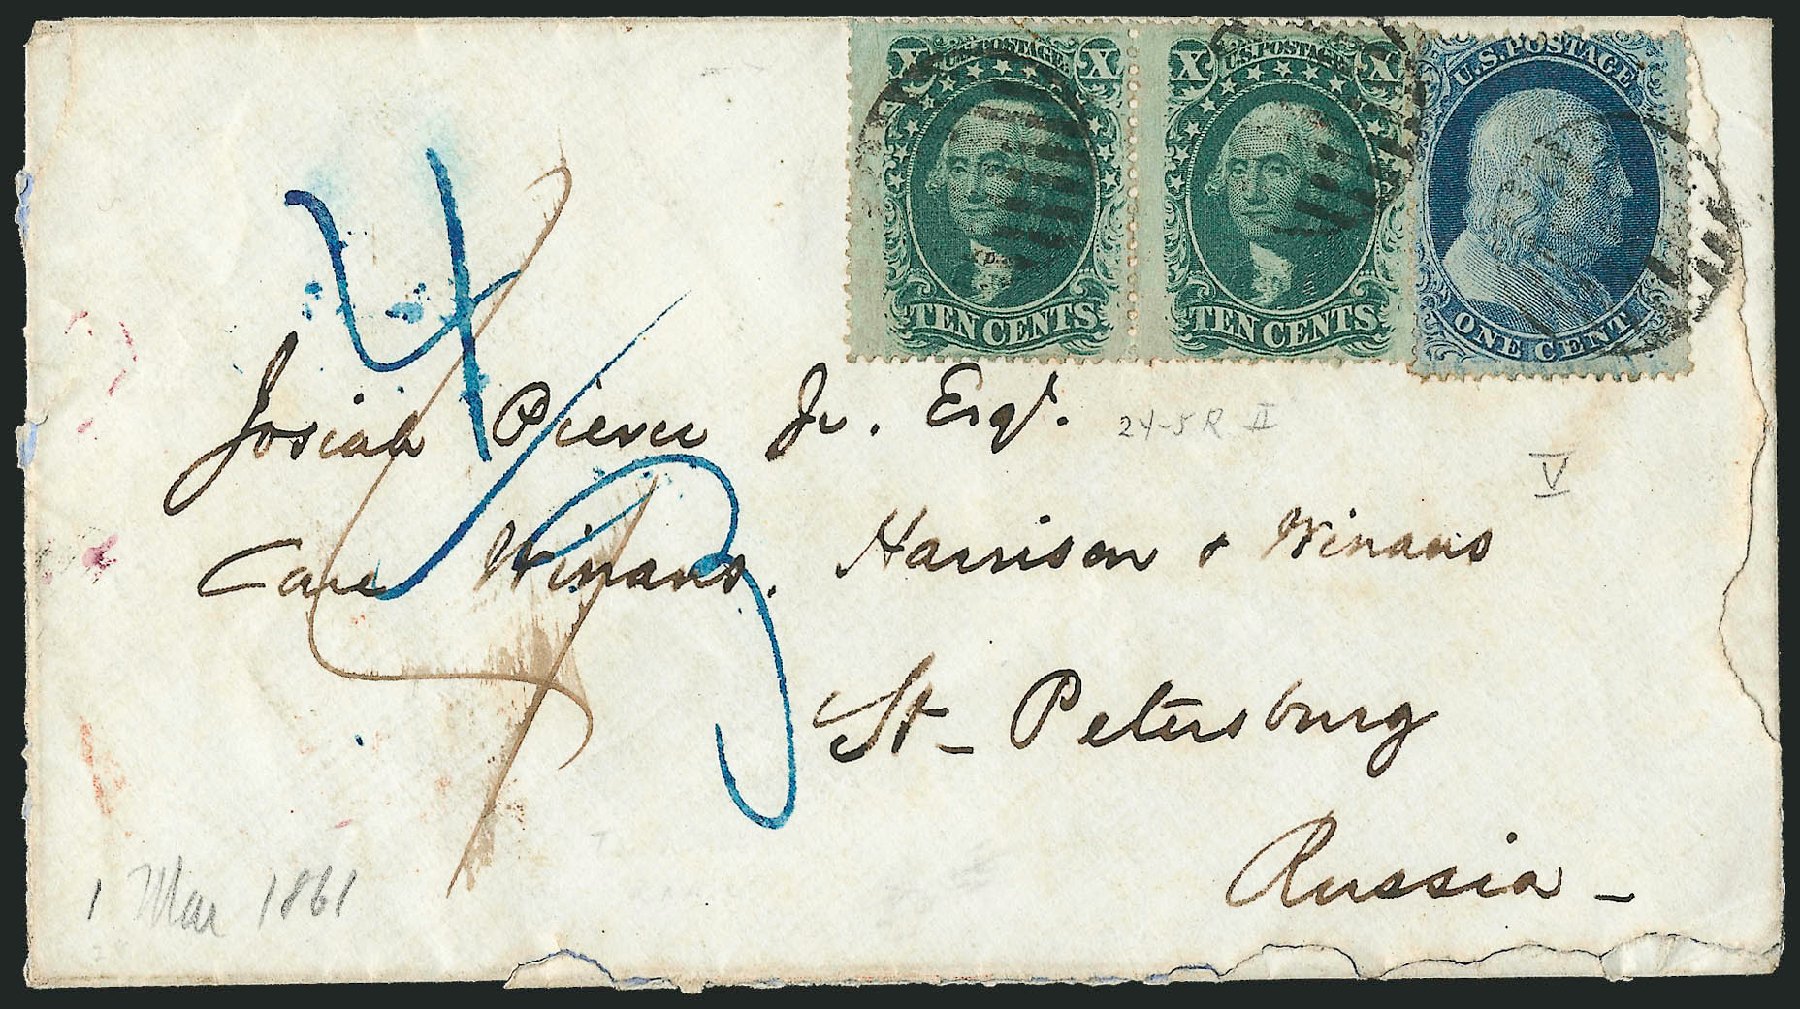 X U.S. POSTAGE X
TEN CENTS
X U.S. POSTAGE X
TEN CENTS
U.S. POSTAGE
ONE CENT
4/3
Josiah Pierce Jr. Esqr.
24-5R II
V
Care Winans, Harrison & Winans
St- Petersburg
Russia -
1 Mar 1861